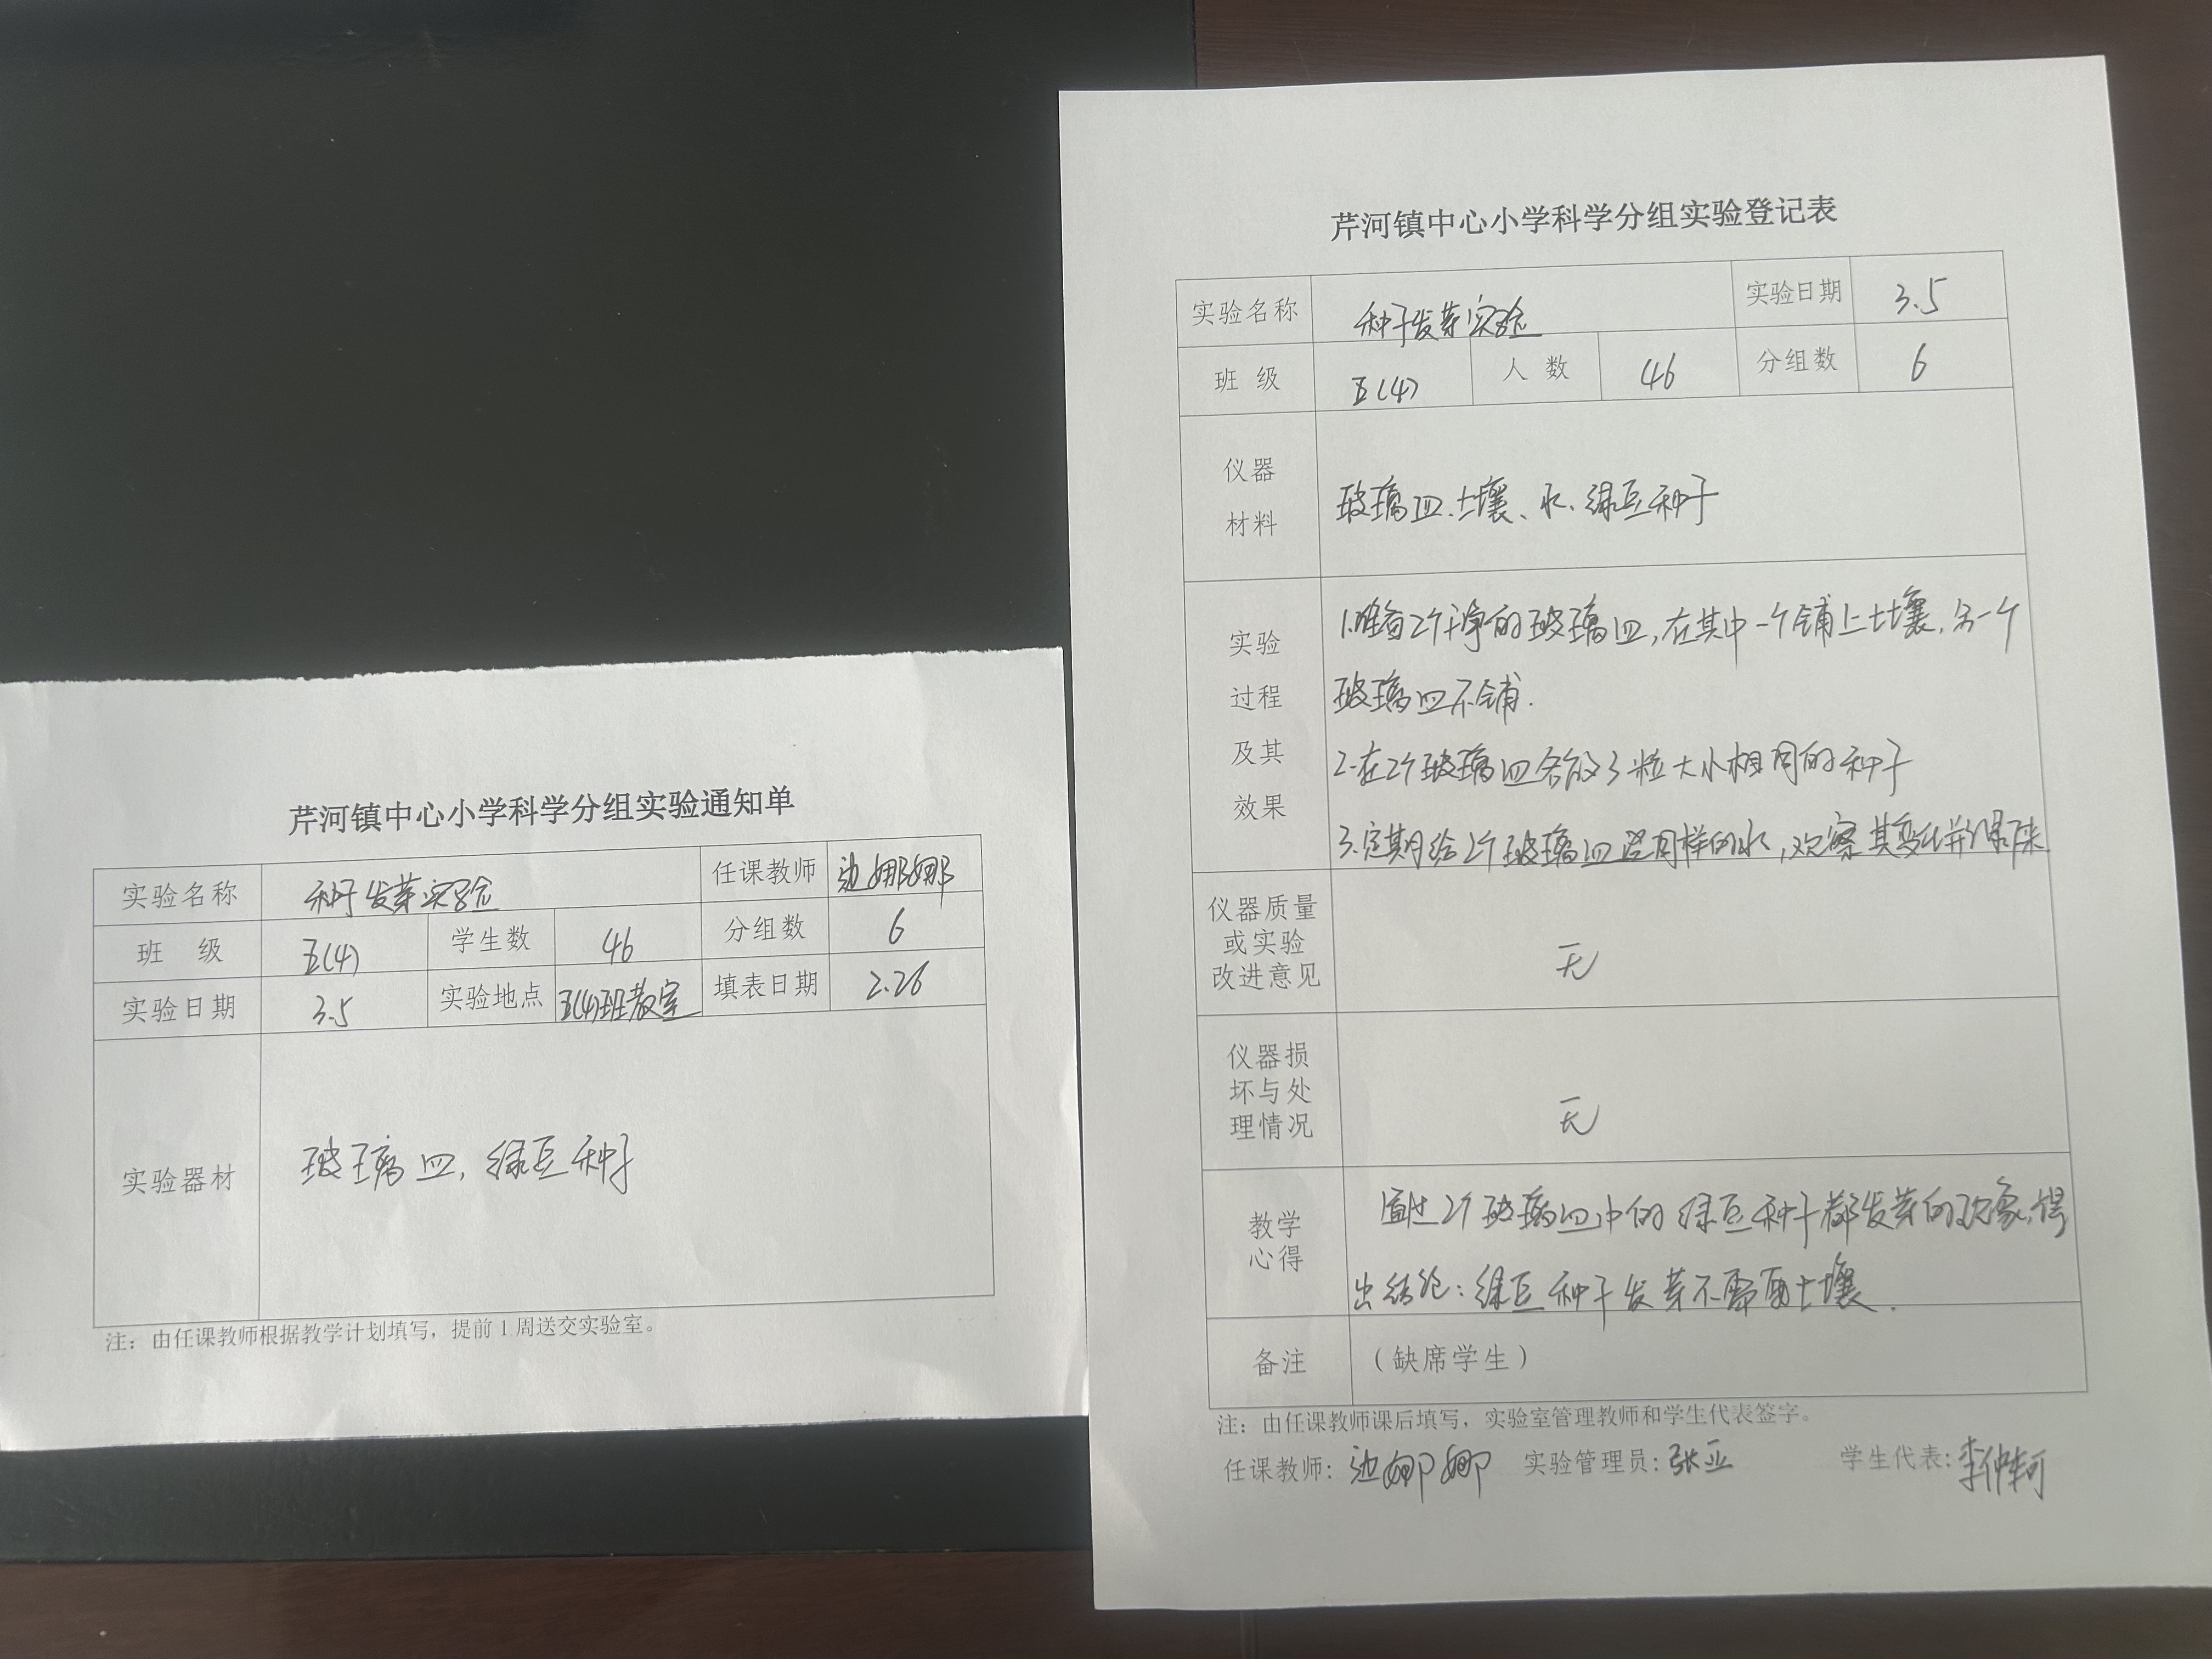 芹河镇中心小学科学分组实验通知单
实验名称 种子发芽实验 任课教师 边娜娜
班 级 五(4) 学生数 46 分组数 6
实验日期 3.5 实验地点 五(4)班教室 填表日期 2.26
实验器材 玻璃皿,绿豆种子
注：由任课教师根据教学计划填写，提前1周送交实验室。
芹河镇中心小学科学分组实验登记表
实验名称 种子发芽实验 实验日期 3.5
班 级 五(4) 人 数 46 分组数 6
仪器
材料
玻璃皿、土壤、水、绿豆种子
实验
过程
及其
效果
1.准备2个干净的玻璃皿,在其中一个铺上土壤,另一个
玻璃皿不铺.
2.在2个玻璃皿各放3粒大小相同的种子
3.定期给2个玻璃皿浇同样的水,观察其变化并记录下来
仪器质量
或实验
改进意见
无
仪器损
坏与处
理情况
无
教学
心得
通过2个玻璃皿中的绿豆种子都发芽的现象,得
出结论:绿豆种子发芽不需要土壤.
备注 （缺席学生）
注：由任课教师课后填写，实验室管理教师和学生代表签字。
任课教师：边娜娜 实验管理员：张亚 学生代表：李仲轲